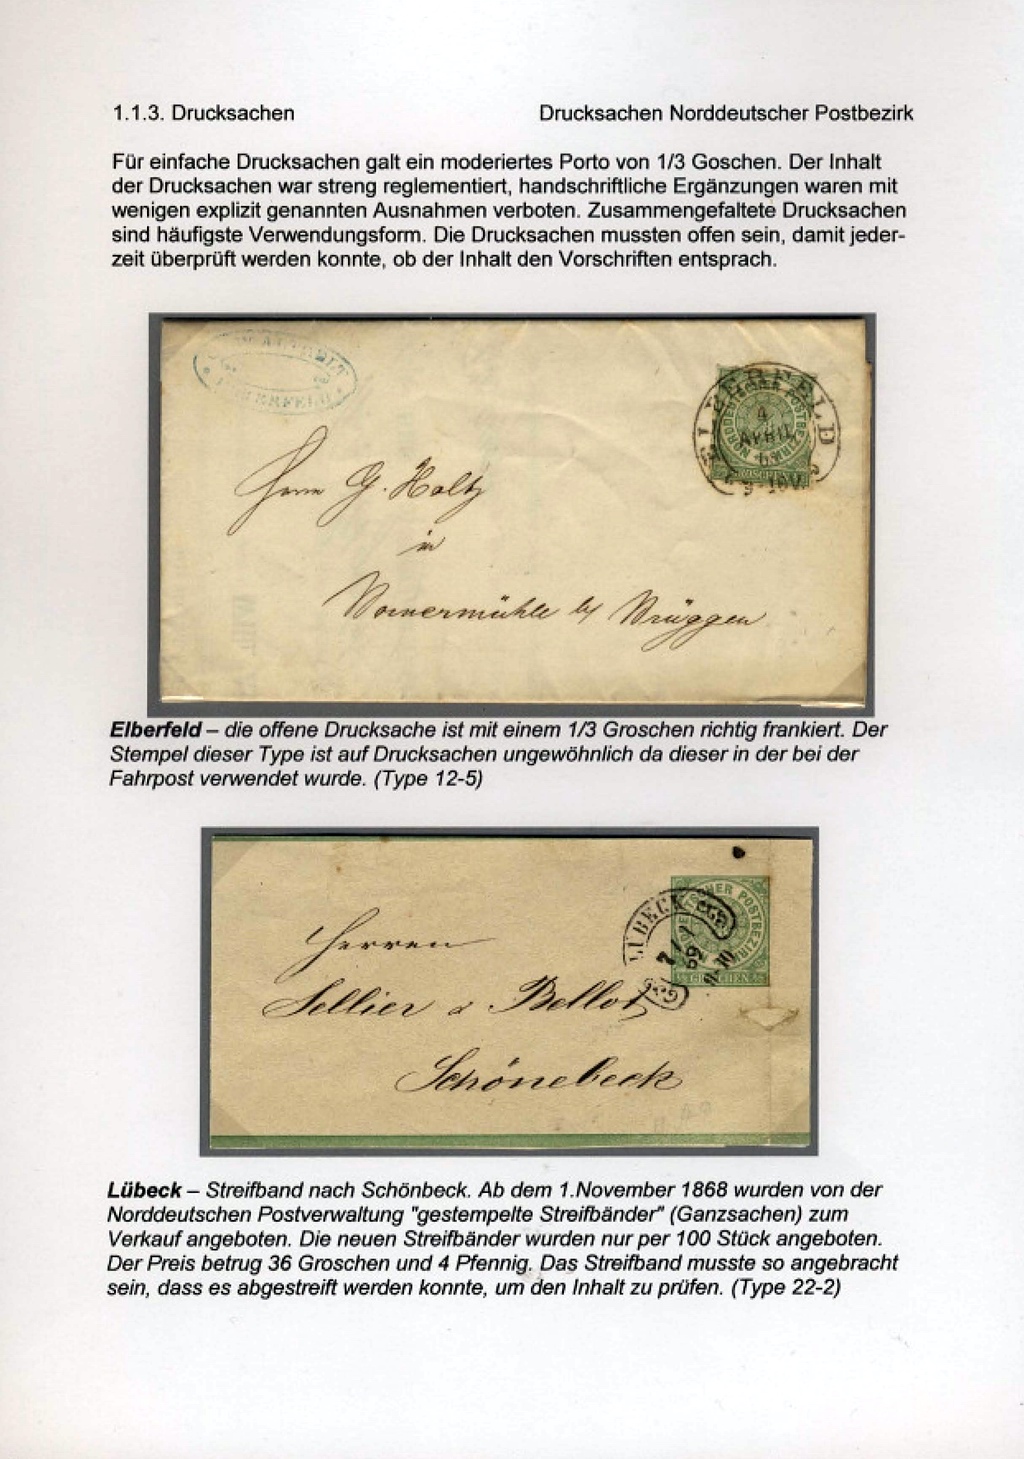 1.1.3. Drucksachen
Drucksachen Norddeutscher Postbezirk
Für einfache Drucksachen galt ein moderiertes Porto von 1/3 Goschen. Der Inhalt
der Drucksachen war streng reglementiert, handschriftliche Ergänzungen waren mit
wenigen explizit genannten Ausnahmen verboten. Zusammengefaltete Drucksachen
sind häufigste Verwendungsform. Die Drucksachen mussten offen sein, damit jeder-
zeit überprüft werden konnte, ob der Inhalt den Vorschriften entsprach.
ELBERFELD
4
APRIL
NORDDEUTSCHER POSTBEZIRK
Herrn G. Holtz
in
Bornermühle by Brüggen
Elberfeld – die offene Drucksache ist mit einem 1/3 Groschen richtig frankiert. Der
Stempel dieser Type ist auf Drucksachen ungewöhnlich da dieser in der bei der
Fahrpost verwendet wurde. (Type 12-5)
LÜBECK
7/1
69
9-10
POSTBEZIRK
GROSCHEN
Herren
Sellier & Bellot
Schönebeck
Lübeck – Streifband nach Schönbeck. Ab dem 1.November 1868 wurden von der
Norddeutschen Postverwaltung "gestempelte Streifbänder" (Ganzsachen) zum
Verkauf angeboten. Die neuen Streifbänder wurden nur per 100 Stück angeboten.
Der Preis betrug 36 Groschen und 4 Pfennig. Das Streifband musste so angebracht
sein, dass es abgestreift werden konnte, um den Inhalt zu prüfen. (Type 22-2)